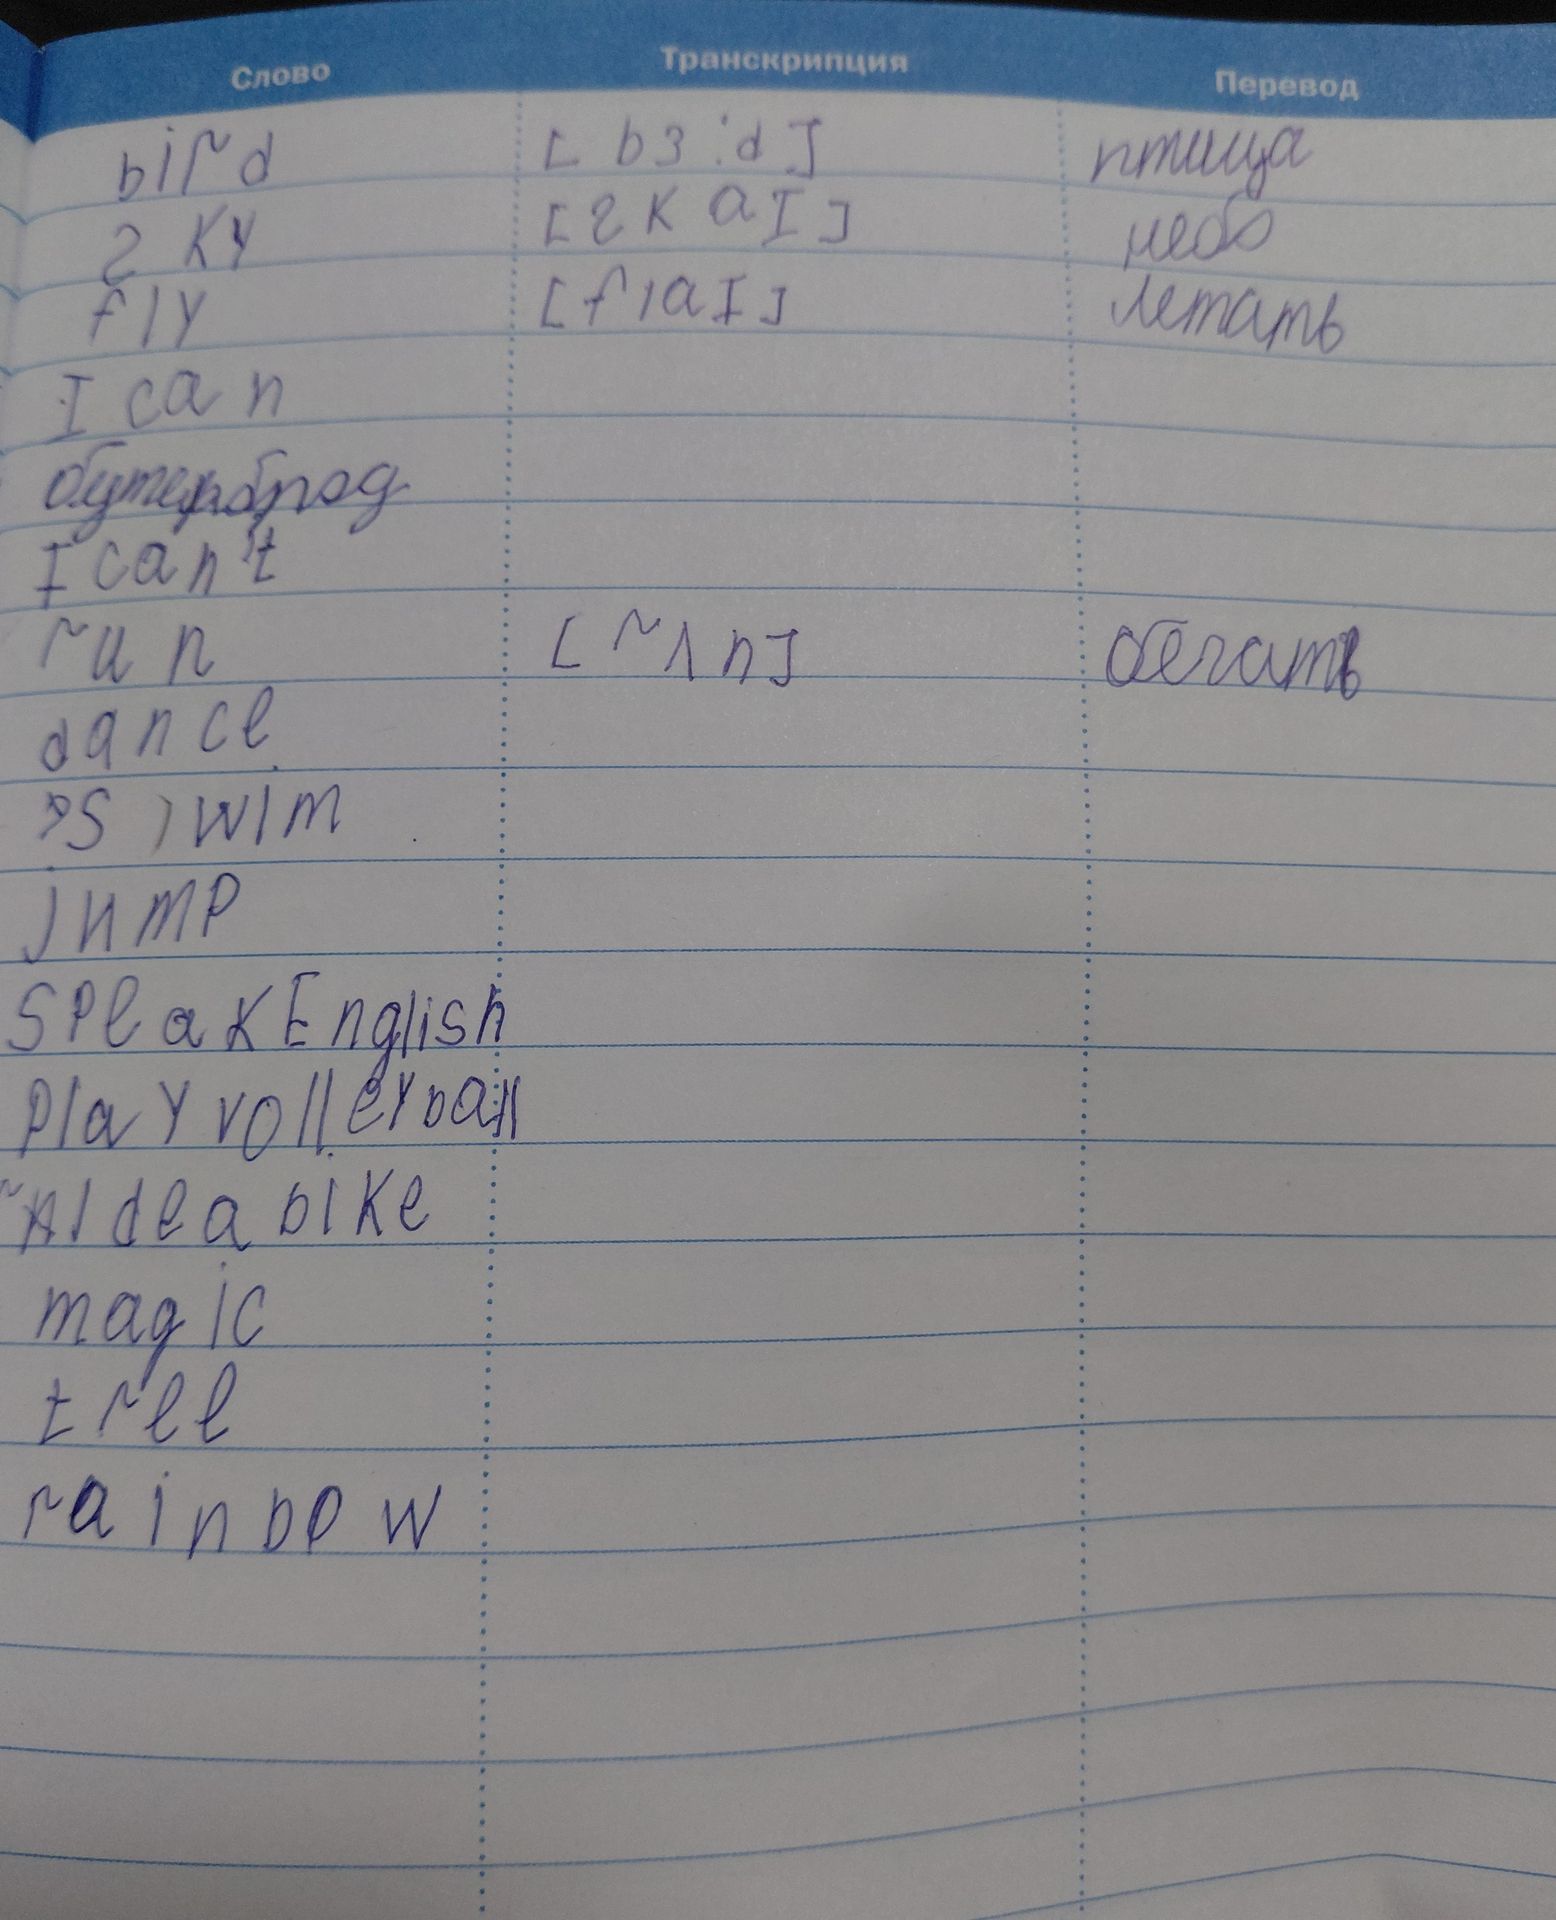 Слово Транскрипция Перевод
bird [bɜ:d] птица
sky [skaI] небо
fly [flaI] летать
I can
бутерброд
I can't
run [rʌn] бегать
dance
swim
jump
speak English
play volleyball
ride a bike
magic
tree
rainbow